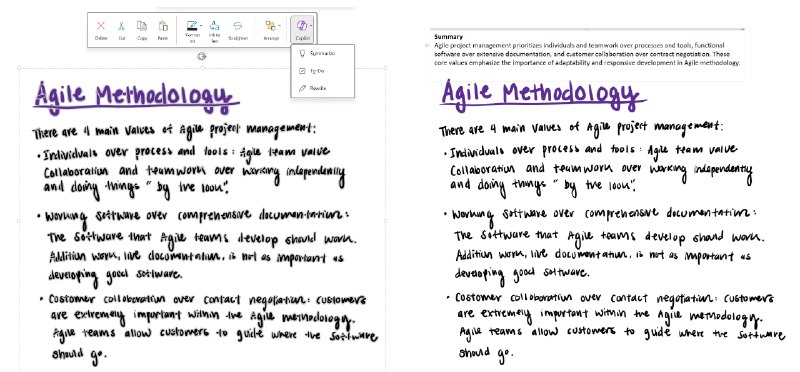 Delete
Cut
Copy
Paste
Format
Ink to
Text
Straighten
Arrange
Copilot
Summarize
To-Do
Rewrite
Agile Methodology
There are 4 main values of Agile project management:
• Individuals over process and tools: Agile team value
Collaboration and teamwork over working independently
and doing things "by the book".
• Working software over comprehensive documentation:
The Software that Agile teams develop should work.
Addition work, like documentation, is not as important as
developing good software.
• Costomer collaboration over contact negotiation: customers
are extremely important within the Agile methodology.
Agile teams allow customers to guide where the software
should go.
Summary
Agile project management prioritizes individuals and teamwork over processes and tools, functional
software over extensive documentation, and customer collaboration over contract negotiation. These
core values emphasize the importance of adaptability and responsive development in Agile methodology.
Agile Methodology
There are 4 main values of Agile project management:
• Individuals over process and tools: Agile team value
Collaboration and teamwork over working independently
and doing things "by the book".
• Working software over comprehensive documentation:
The Software that Agile teams develop should work.
Addition work, like documentation, is not as important as
developing good software.
• Costomer collaboration over contact negotiation: customers
are extremely important within the Agile methodology.
Agile teams allow customers to guide where the software
should go.